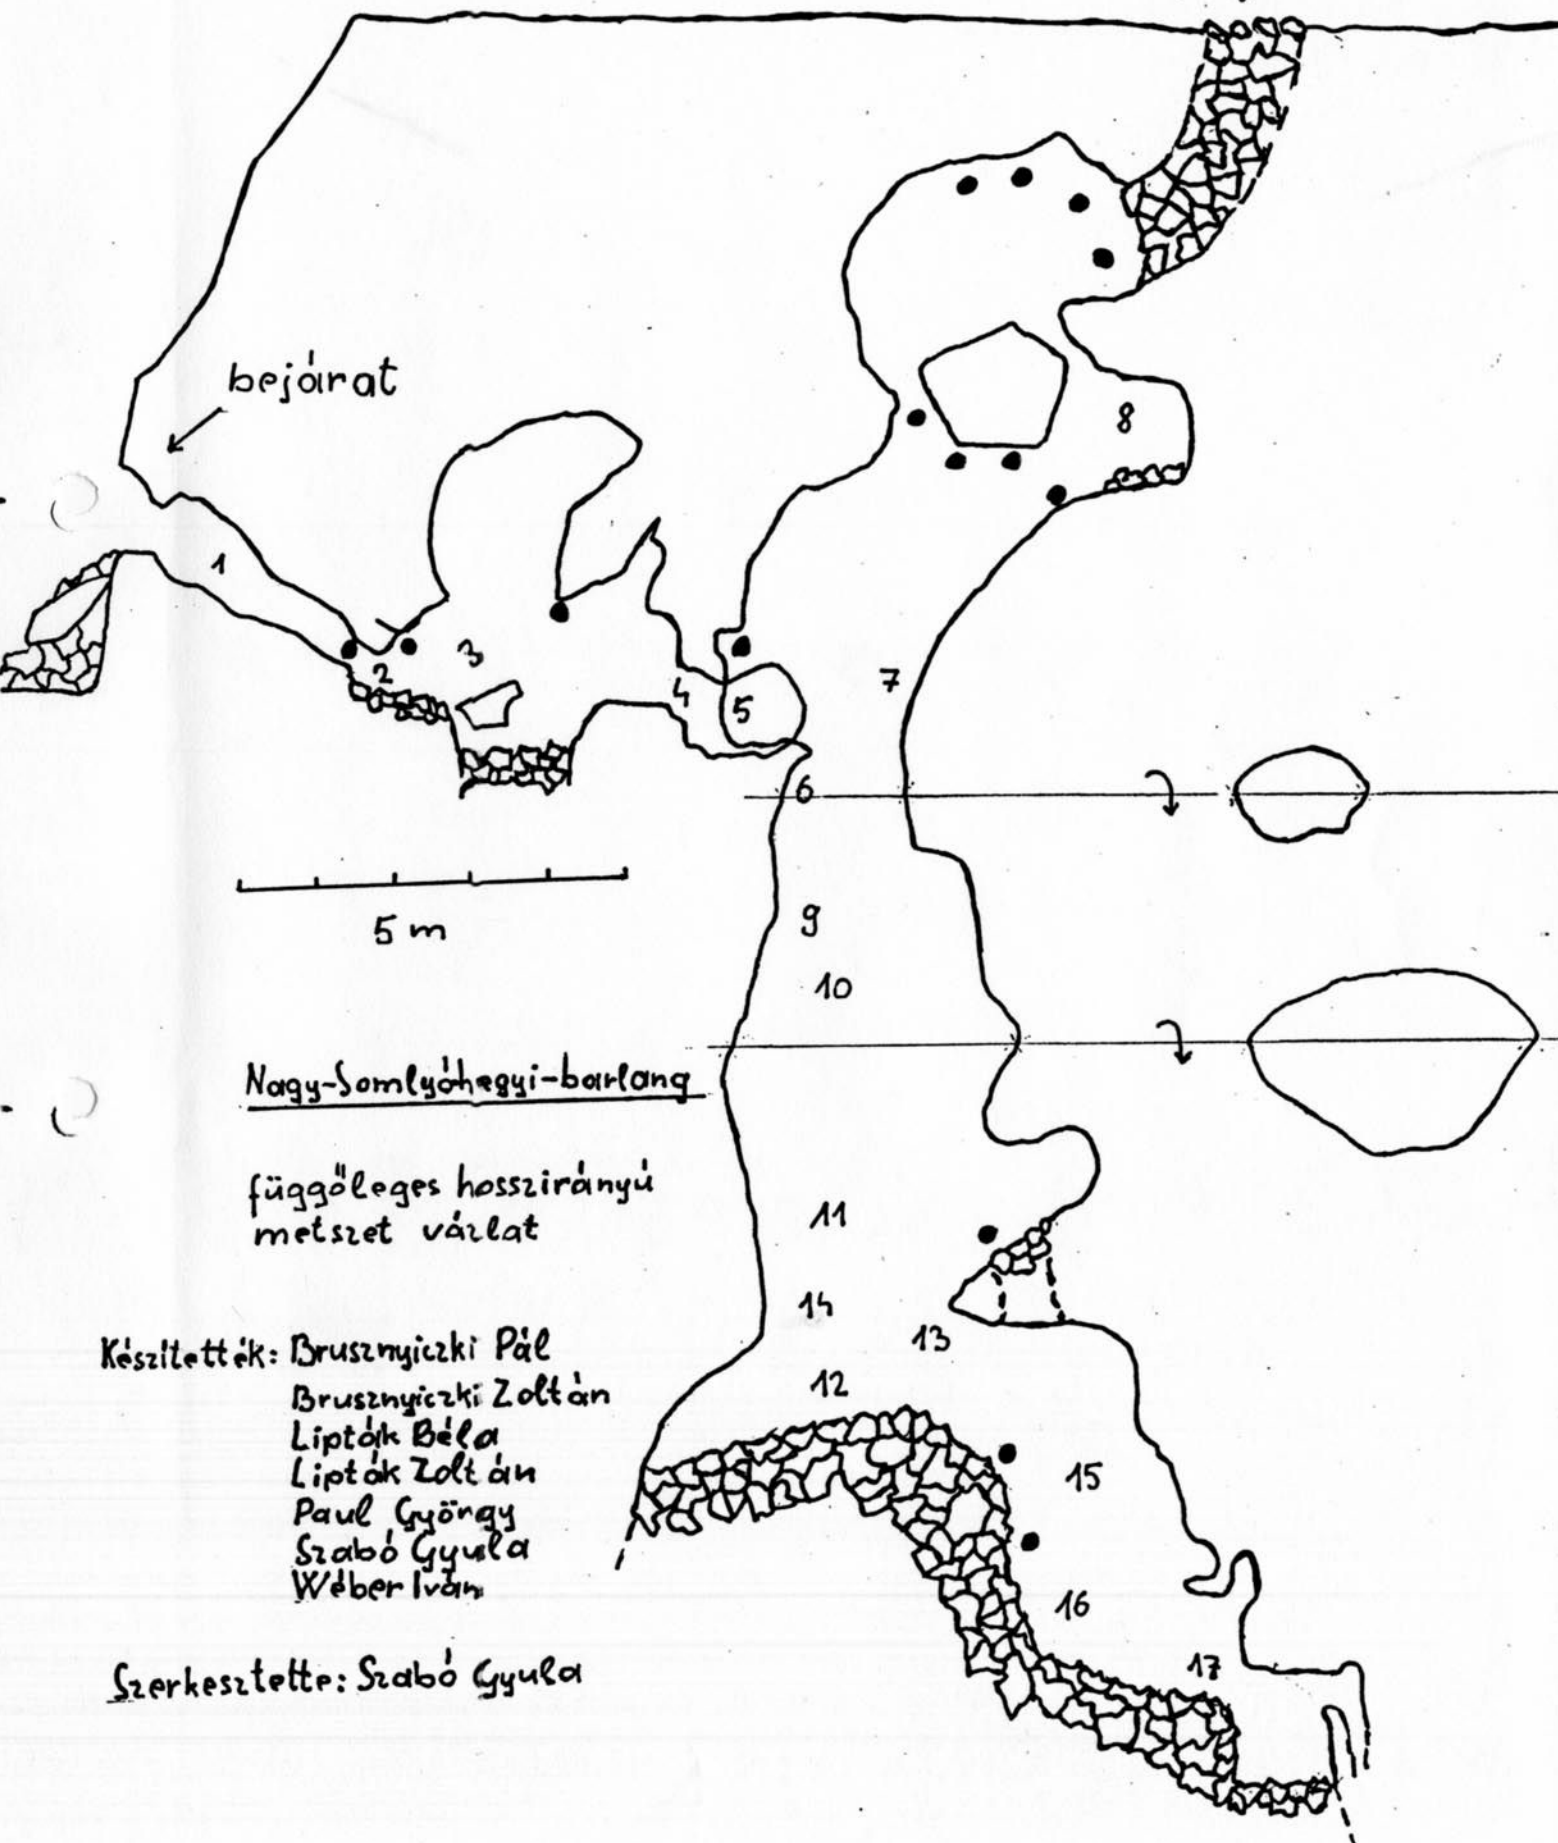 bejárat
8
1
3
2
4
5
7
6
5 m
9
10
Nagy-Somlyóhegyi-barlang
függőleges hosszirányú
metszet vázlat
11
14
13
12
Készítették: Brusznyiczki Pál
Brusznyiczki Zoltán
Lipták Béla
Lipták Zoltán
Paul György
Szabó Gyula
Wéber Iván
15
16
17
Szerkesztette: Szabó Gyula